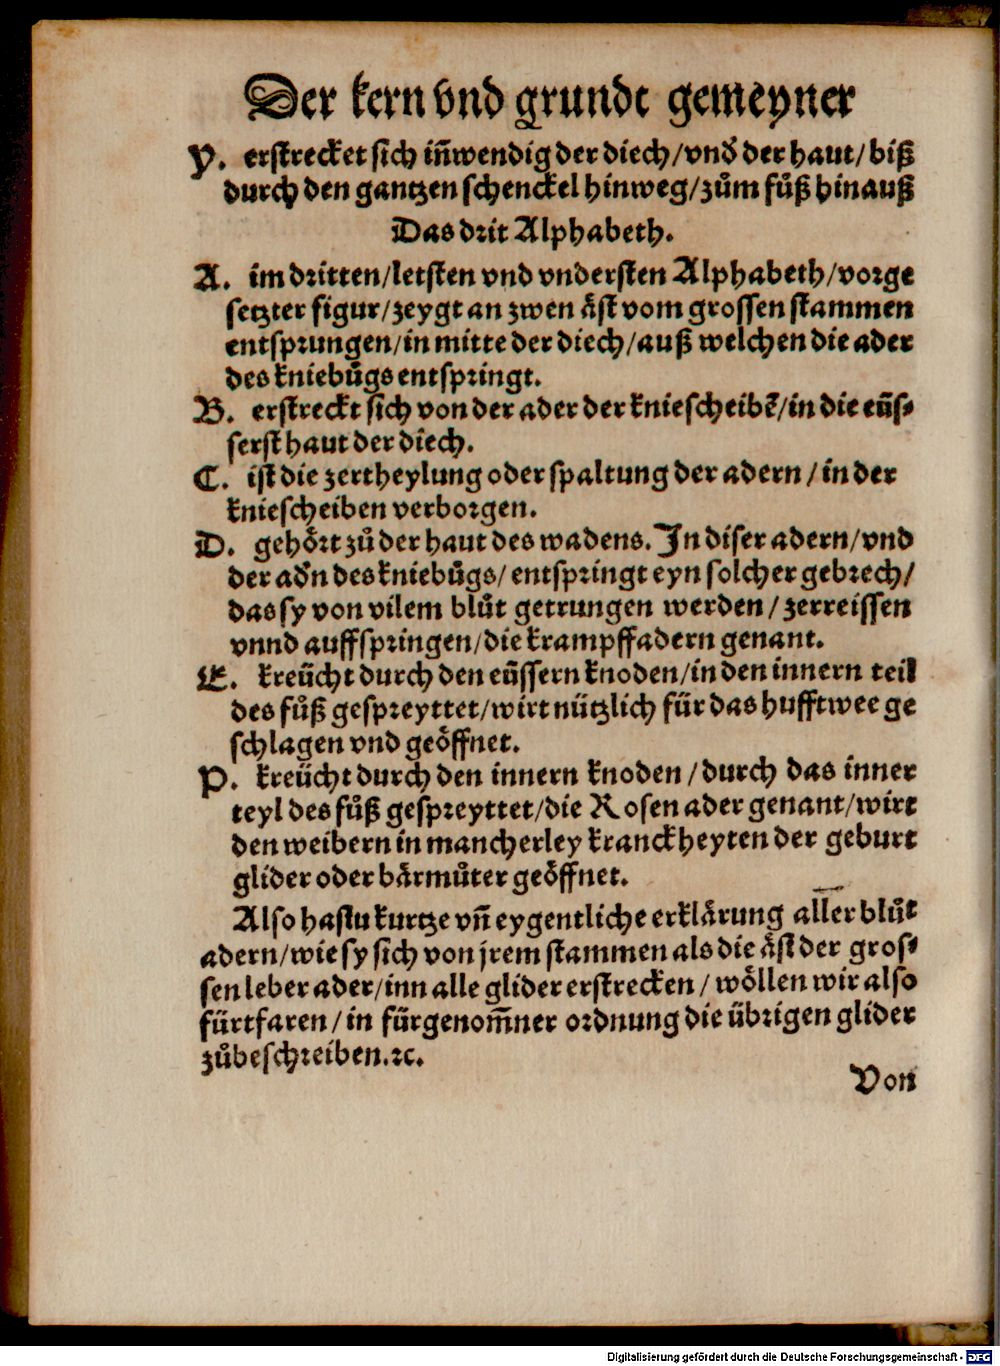 Der kern vnd grundt gemeyner
Y. erstrecket sich iñwendig der diech/vnd der haut/biß
durch den gantzen schenckel hinweg/zům fůß hinauß
Das drit Alphabeth.
A. im dritten/letsten vnd vndersten Alphabeth/vorge
setzter figur/zeygt an zwen äst vom grossen stammen
entsprungen/in mitte der diech/auß welchen die ader
des kniebůgs entspringt.
B. erstreckt sich von der ader der kniescheibẽ/in die eüs-
serst haut der diech.
C. ist die zertheylung oder spaltung der adern/in der
kniescheiben verborgen.
D. gehört zů der haut des wadens. In diser adern/vnd
der adn des kniebůgs/entspringt eyn solcher gebrech/
das sy von vilem blůt getrungen werden/zerreissen
vnnd auffspringen/die krampffadern genant.
E. kreücht durch den eüssern knoden/in den innern teil
des fůß gespreyttet/wirt nützlich für das hufftwee ge
schlagen vnd geöffnet.
P. kreücht durch den innern knoden/durch das inner
teyl des fůß gespreyttet/die Rosen ader genant/wirt
den weibern in mancherley kranckheyten der geburt
glider oder bärmůter geöffnet.
Also hastu kurtze vñ eygentliche erklärung aller blůt
adern/wie sy sich von jrem stammen als die äst der gros-
sen leber ader/inn alle glider erstrecken/wöllen wir also
fürtfaren/in fürgenom̃ner ordnung die übrigen glider
zůbeschreiben.ꝛc.
Von
Digitalisierung gefördert durch die Deutsche Forschungsgemeinschaft - DFG